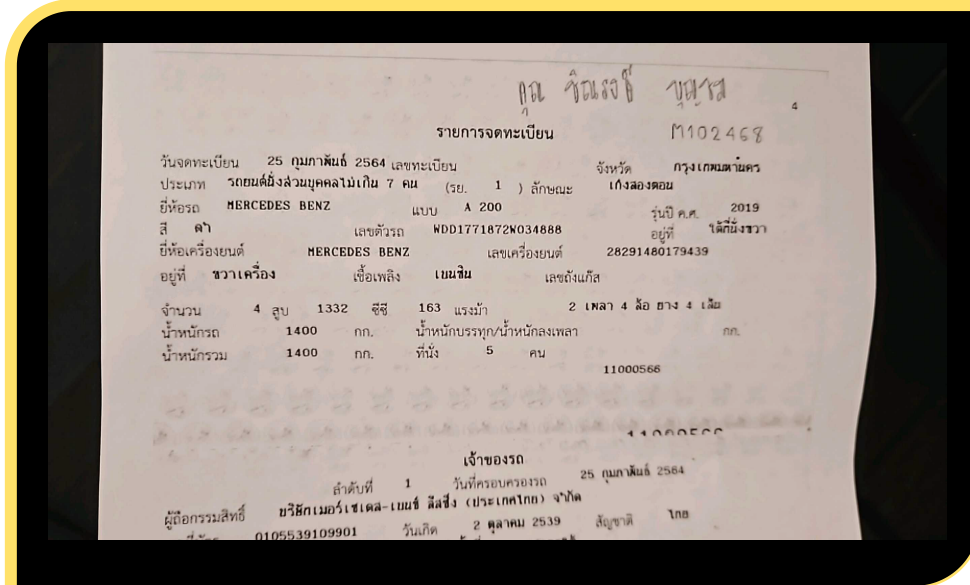 คุณ ชิณรงค์ บุญชม
4
รายการจดทะเบียน
M102468
วันจดทะเบียน 25 กุมภาพันธ์ 2564 เลขทะเบียน จังหวัด กรุงเทพมหานคร
ประเภท รถยนต์นั่งส่วนบุคคลไม่เกิน 7 คน (รย. 1 ) ลักษณะ เก๋งสองตอน
ยี่ห้อรถ MERCEDES BENZ แบบ A 200 รุ่นปี ค.ศ. 2019
สี ดำ เลขตัวรถ WDD1771872W034888 อยู่ที่ ใต้ที่นั่งขวา
ยี่ห้อเครื่องยนต์ MERCEDES BENZ เลขเครื่องยนต์ 28291480179439
อยู่ที่ ขวาเครื่อง เชื้อเพลิง เบนซิน เลขถังแก๊ส
จำนวน 4 สูบ 1332 ซีซี 163 แรงม้า 2 เพลา 4 ล้อ ยาง 4 เส้น
น้ำหนักรถ 1400 กก. น้ำหนักบรรทุก/น้ำหนักลงเพลา กก.
น้ำหนักรวม 1400 กก. ที่นั่ง 5 คน
11000566
11000566
เจ้าของรถ
ลำดับที่ 1 วันที่ครอบครองรถ 25 กุมภาพันธ์ 2564
ผู้ถือกรรมสิทธิ์ บริษัทเมอร์เซเดส-เบนซ์ ลีสซิ่ง (ประเทศไทย) จำกัด
0105539109901 วันเกิด 2 ตุลาคม 2539 สัญชาติ ไทย